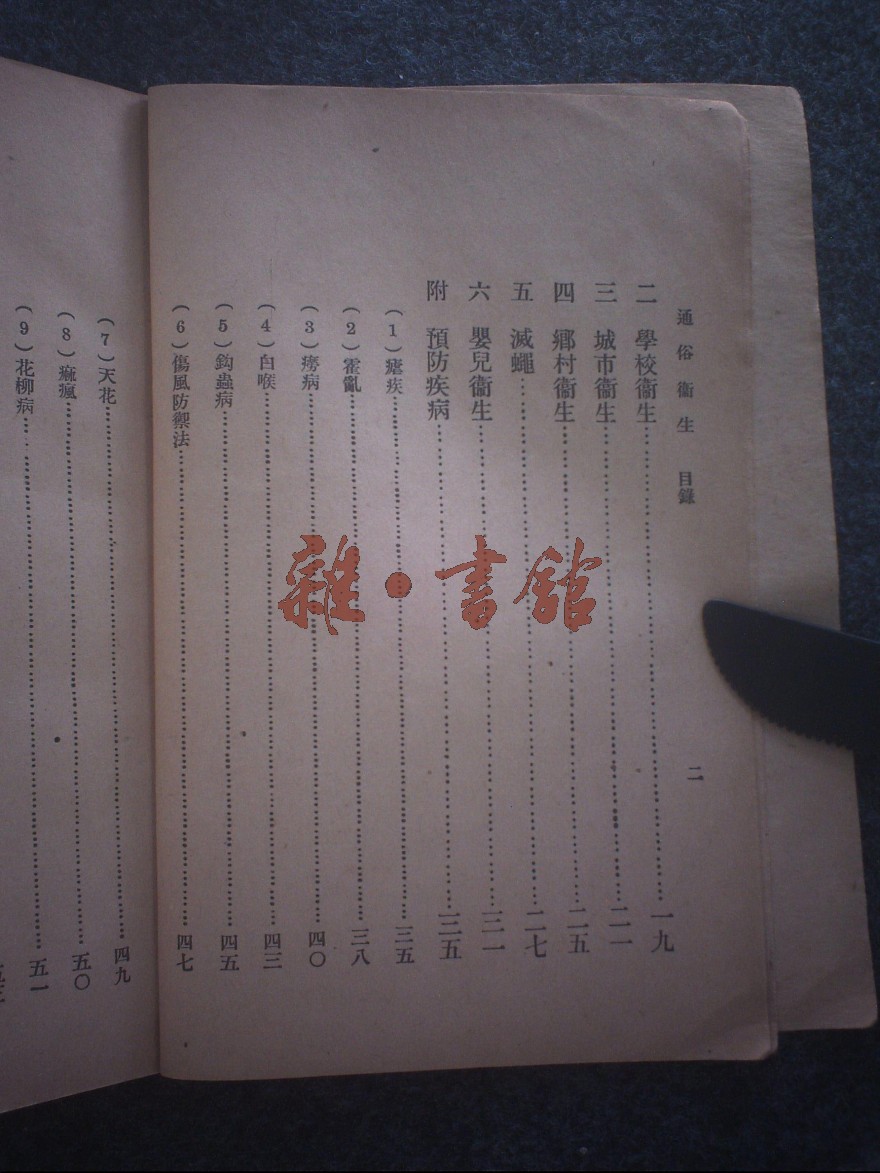 通俗衞生 目錄
二
二 學校衞生……一九
三 城市衞生……二一
四 鄉村衞生……二五
五 滅蠅……二七
六 嬰兒衞生……三一
附 預防疾病……三五
(1)瘧疾……三五
(2)霍亂……三八
(3)癆病……四〇
(4)白喉……四三
(5)鈎蟲病……四五
(6)傷風防禦法……四七
(7)天花……四九
(8)痲瘋……五〇
(9)花柳病……五一
雜·書館